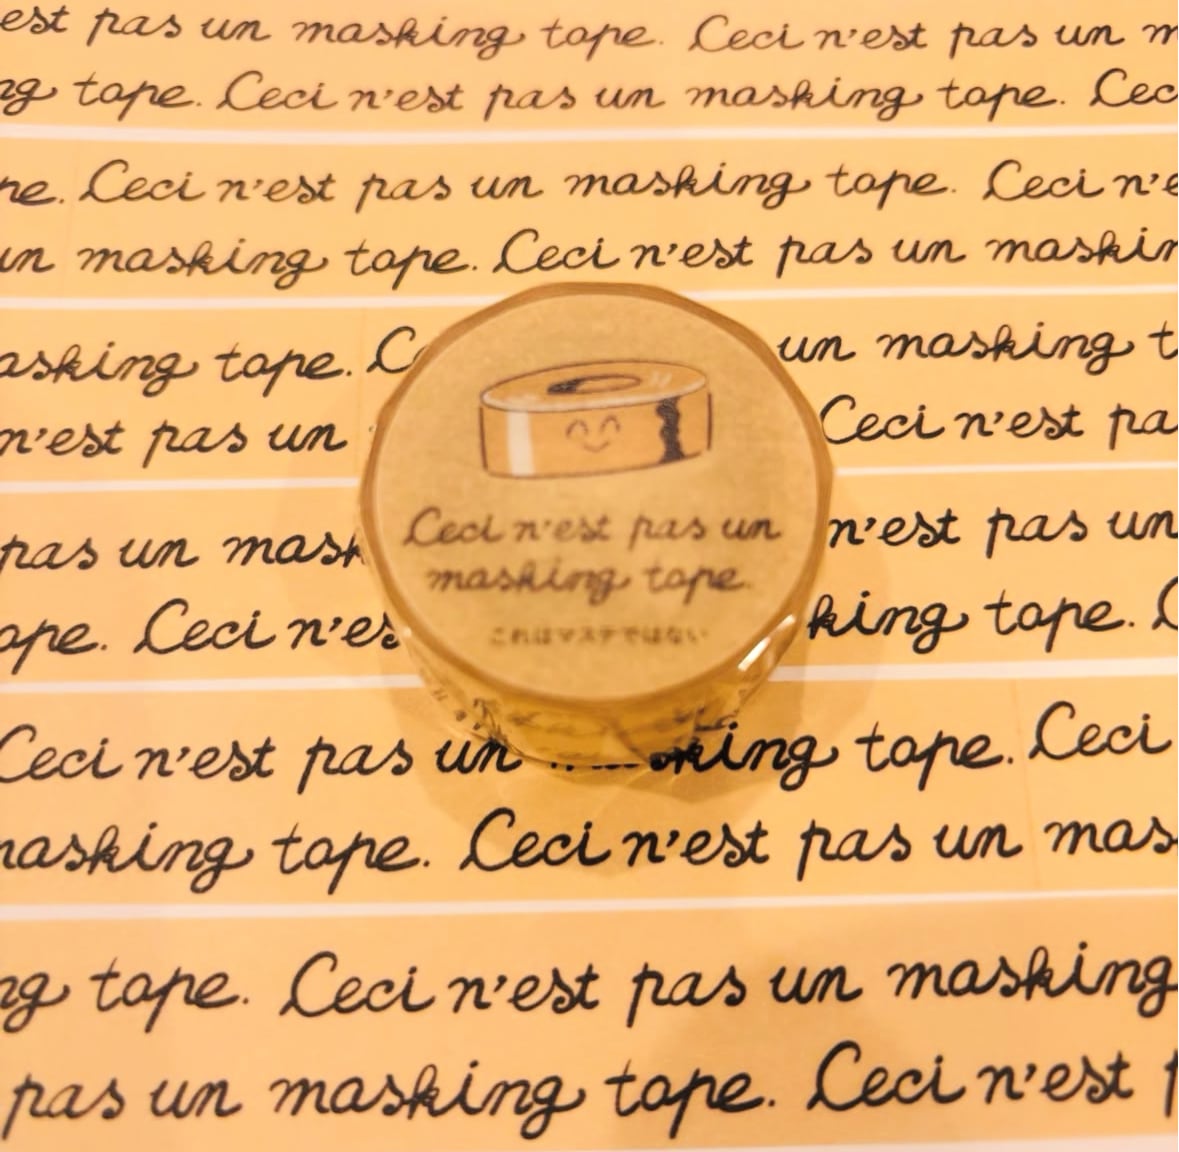 est pas un masking tape. Ceci n'est pas un m
ng tape. Ceci n'est pas un masking tape. Cec
pe. Ceci n'est pas un masking tape. Ceci n'e
un masking tape. Ceci n'est pas un maskin
asking tape. C un masking t
n'est pas un Ceci n'est pa
pas un mask n'est pas un
ape. Ceci n'es king tape. C
Ceci n'est pas un
masking tape.
これはマステではない
Ceci n'est pas un king tape. Ceci
masking tape. Ceci n'est pas un mas
ng tape. Ceci n'est pas un masking
pas un masking tape. Ceci n'est p